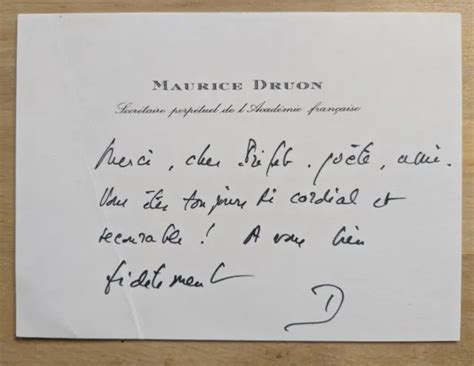 MAURICE DRUON
Secrétaire perpétuel de l'Académie française
Merci, cher Préfet, poète, ami.
Vous êtes toujours si cordial et
secourable ! A vous bien
fidèlement
D